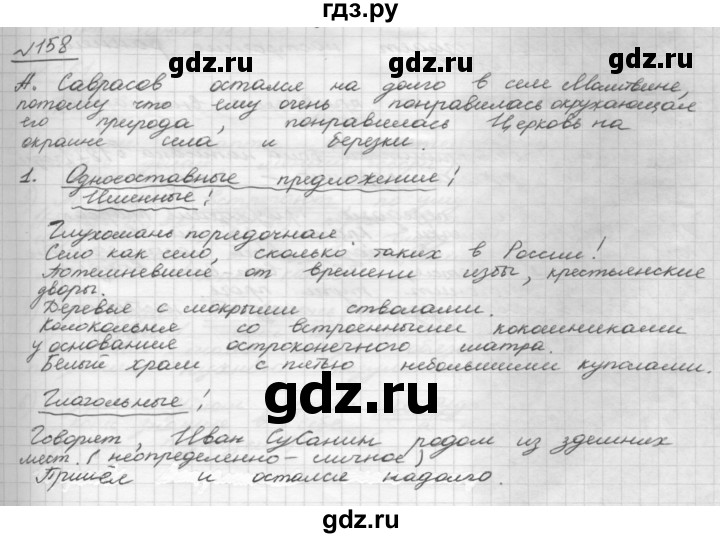 гдз.ру
№158
gdz.ru gdz.ru
А. Саврасов остался на долго в селе Молтвине,
потому что ему очень понравилась окружающая
его природа, понравилась Церковь на
окраине села и березки.
1. Односоставные предложение!
Именные!
Глухомань порядочная.
Село как село, сколько таких в России!
Потемневшие от времени избы, крестьянские
дворы.
Деревья с мокрыми стволами.
Колокольня со встроенными кокошниками
у основания остроконечного шатра.
Белый храм с пятью небольшими куполами.
gdz.ru
Глагольные!
gdz.ru
Говорят, Иван Сусанин родом из здешних
мест. (неопределенно-личное)
Пришёл и остался надолго.
gdz.ru